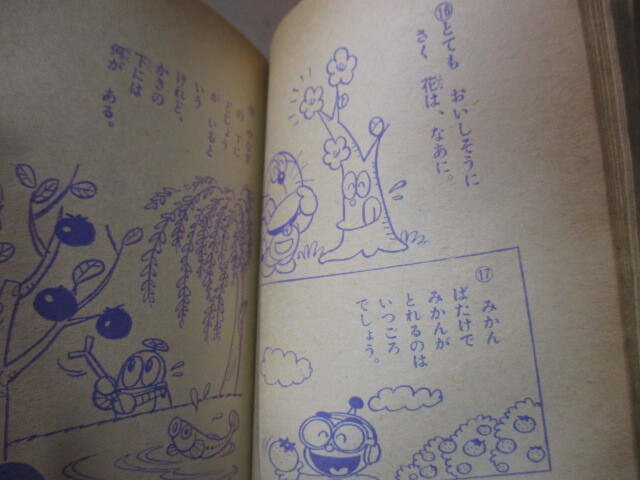 ⑯とても おいしそうに
さく 花は、なあに。
⑰ みかん
ばたけで
みかんが
とれるのは
いつごろ
でしょう。
いう
けれど、
かきの
下には
何が ある。